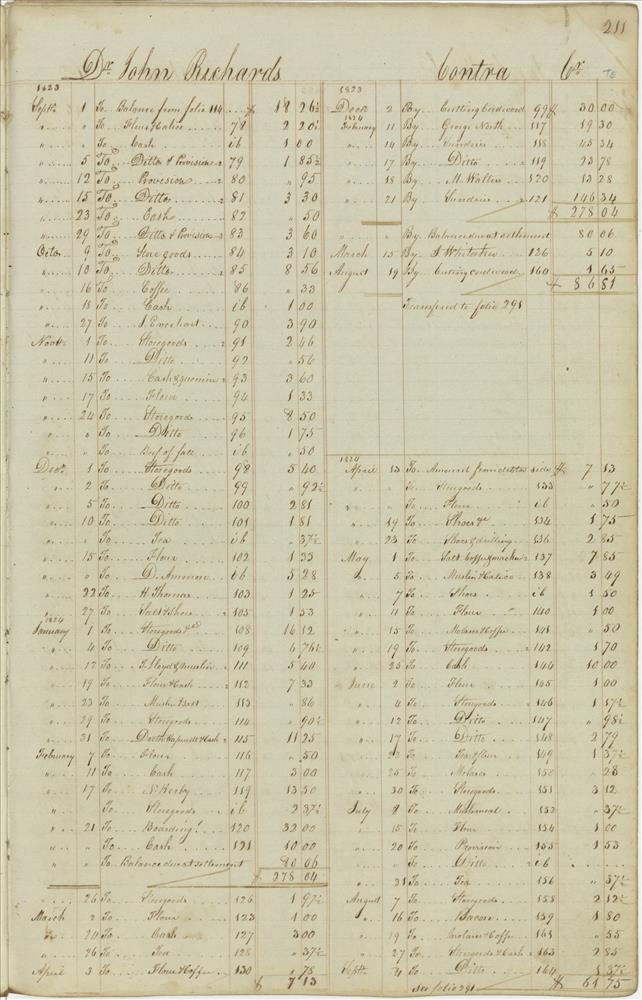 211
Dr. John Richards
1823
Septr. 1 To Balance from folio 114 $ 18 26½
" " To Flour & Calico 78 2 20½
" " To Cash ib 1 00
" 5 To Ditto & Provision 79 1 85½
" 12 To Provision 80 " 95
" 15 To Ditto 81 3 30
" 23 To Cash 82 " 50
" 29 To Ditto & Provision 83 3 60
Octor. 9 To Store goods 84 3 10
" 10 To Ditto 85 8 56
" 16 To Coffee 86 " 33
" 18 To Cash ib 1 00
" 27 To J Everhart 90 3 90
Novr. 1 To Storegoods 91 2 46
" 11 To Ditto 92 " 56
" 15 To Cash & 93 3 60
" 17 To Flour 94 1 33
" 24 To Storegoods 95 8 50
" " To Ditto 96 1 75
" " To ib " 50
Decr. 1 To Storegoods 98 5 40
" 2 To Ditto 99 " 92½
" 5 To Ditto 100 2 81
" 10 To Ditto 101 1 81
" " To Tea ib " 37½
" 15 To Flour 102 1 33
" " To D. Ammon ib 5 28
" 22 To H Thomas 103 1 25
" 27 To Salt & Shoes 105 1 53
1824
January 1 To Storegoods &c 108 16 12
" 4 To Ditto 109 6 76½
" 12 To Lloyd & muslin 111 5 40
" 19 To Flour & Cash 112 7 33
" 23 To 113 " 86
" 29 To Storegoods 114 " 90½
" 31 To & Cash 115 11 25
February 7 To Flour 116 " 50
" 11 To Cash 117 3 00
" 17 To N. Kerby 119 13 50
" To Storegoods ib 2 37½
" 21 To Boarding 120 32 00
" " To Cash 121 10 00
" " To Balance due at settlement 80 06
$ 278 04
" 26 To Storegoods 126 1 97½
March 2 To Flour 123 1 00
" 24 To Cash 127 3 00
" 26 To Tea 128 " 37½
April 3 To Flour & Coffee 130 " 78
$ 7 13
Contra Cr.
TE
1823
Decr. 2 By Cutting Cordwood 99 $ 30 00
1824
February 11 By George North 117 19 30
" 14 By Sundries 118 45 34
" 17 By Ditto 119 23 78
" 18 By M. Walter 120 13 28
" 21 By Sundries 121 146 34
$ 278 04
" " By Balance due at settlement 80 06
March 15 By J Whitaker 126 5 10
August 19 By Cutting cordwood 160 1 65
$ 86 81
Transferred to folio 291
1824
April 13 To Amount from debtor side $ 7 13
" " To Storegoods 133 " 77½
" " To Flour ib " 50
" 19 To Shoes &c 134 1 75
" 23 To Shoes & drilling 136 2 85
May 1 To Salt Coffee & 137 7 85
" 5 To Muslin & Calico 138 3 49
" 7 To Shoes ib 1 50
" 11 To Flour 140 1 00
" 15 To Molases & Coffee 141 " 50
" 19 To Storegoods 142 1 70
" 25 To Cash 144 10 00
June 2 To Flour 145 1 00
" 4 To Storegoods 146 1 17½
" 12 To Ditto 147 " 98½
" 17 To Ditto 148 2 79
" 23 To Tea & flour 149 1 37½
" 25 To Molases 150 " 28
" 30 To Storegoods 151 3 12
July 8 To 152 " 37½
" 15 To Flour 154 1 00
" 20 To Provision 155 1 53
" " To Ditto ib
" 31 To Tea 156 " 37½
August 7 To Storegoods 158 2 12½
" 16 To Bacon 159 1 80
" 19 To Molases & Coffee 161 " 55
" 27 To Storegoods & Cash 163 2 85
Septr. 4 To Ditto 164 1 37½
See folio 291 $ 61 75